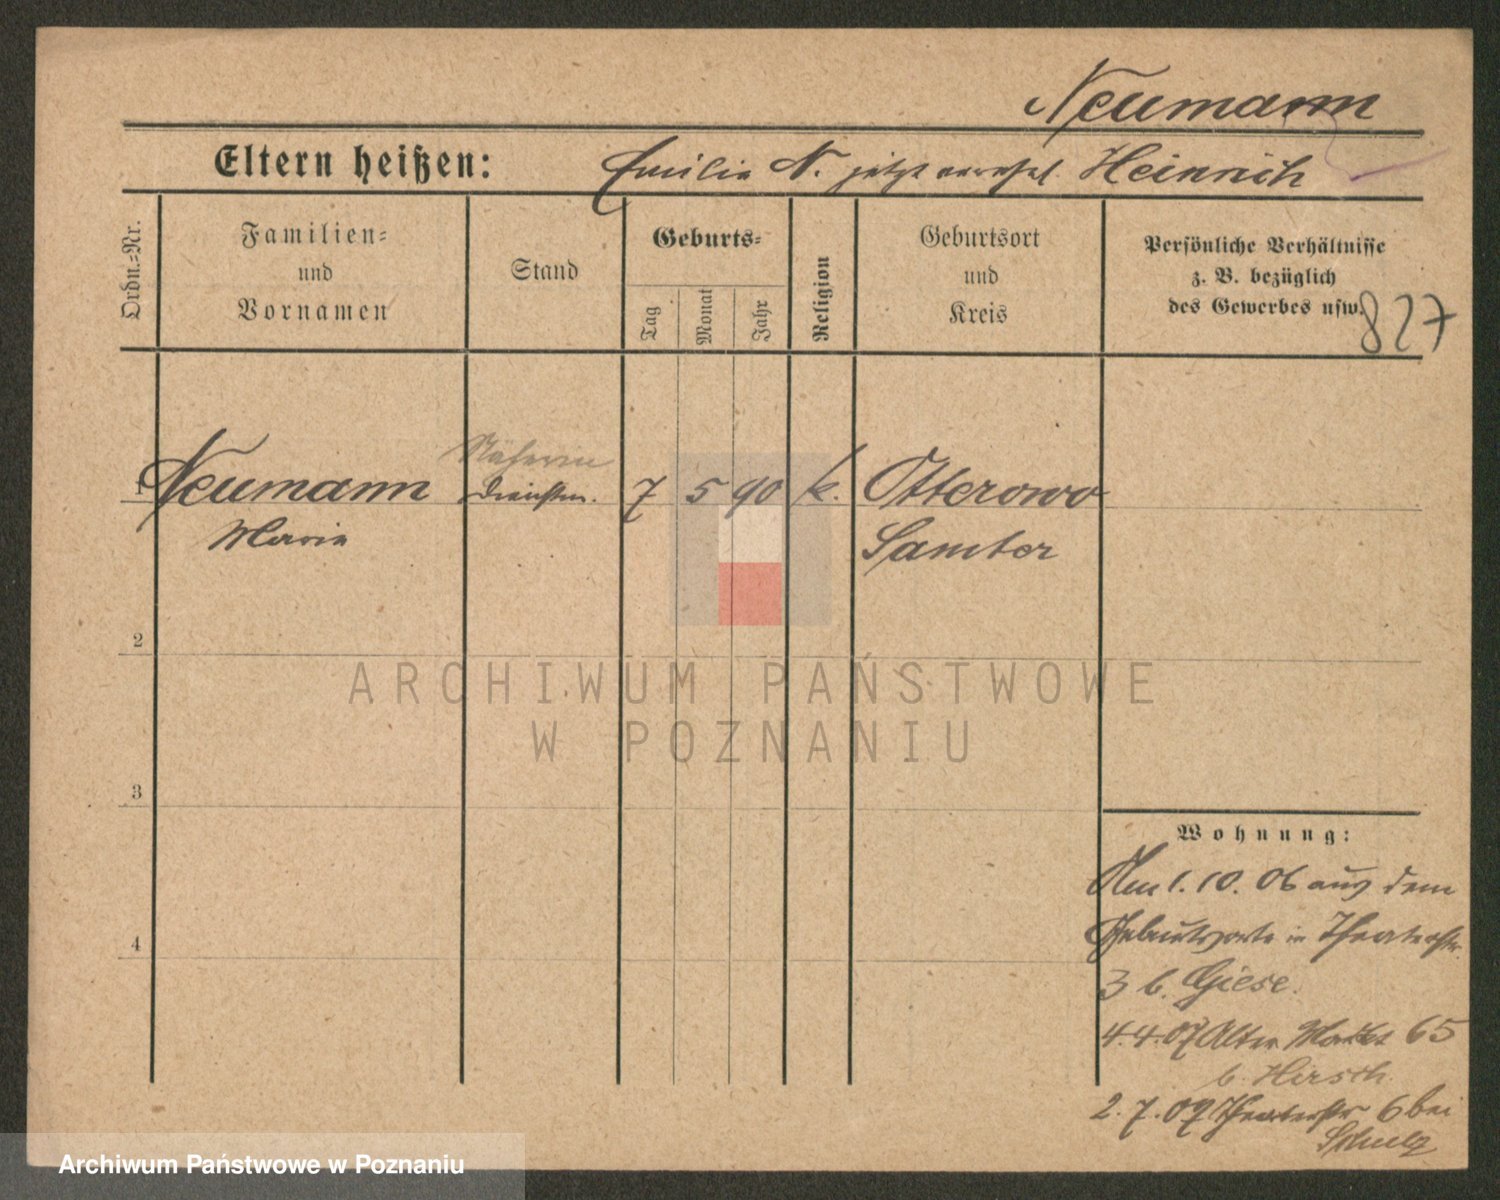 Neumann
Eltern heißen: Emilie N. jetzt verehel Heinrich
Ordn.=Nr.
Familien=
und
Vornamen
Stand
Geburts=
Tag
Monat
Jahr
Religion
Geburtsort
und
Kreis
Persönliche Verhältnisse
z. B. bezüglich
des Gewerbes usw.
827
Näherin
1 Neumann Dienstm. 7 5 90 k. Otterowo
Marie Samter
2
3
4
ARCHIWUM PAŃSTWOWE
W POZNANIU
Wohnung:
Am 1. 10. 06 aus dem
Geburtsorte in Theaterstr.
3 b. Giese.
4.4.07 Alter Markt 65
b. Hirsch.
2.7.07 Theaterstr 6 bei
Schulz
Archiwum Państwowe w Poznaniu